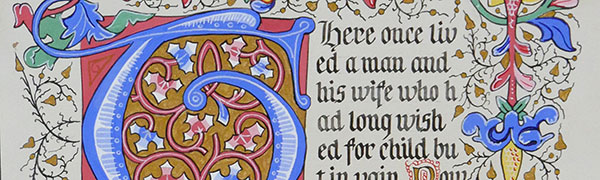 There once liv
ed a man and
his wife who h
ad long wish
ed for child bu
t in vain. Now